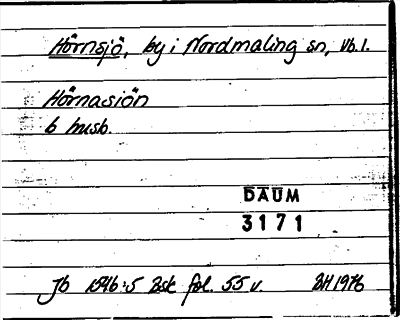 Hörnsjö, by i Nordmaling sn, Vb. l.
Hörnasiön
6 husb.
DAUM
3171
Jb 1546:5 Bsk fol. 55 v. BH 1976